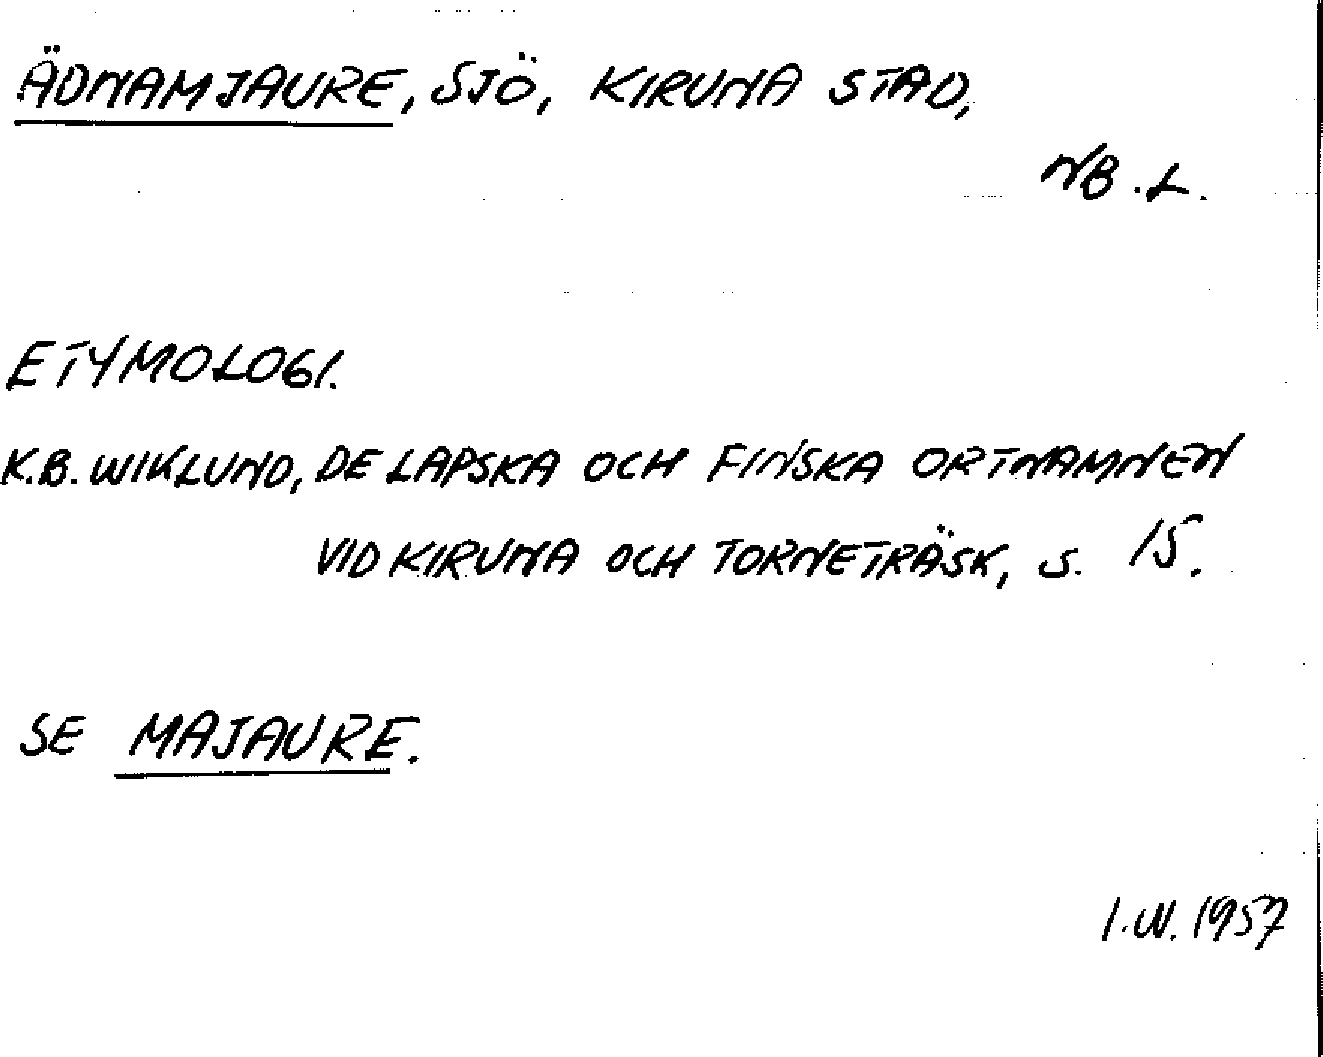 ÄDNAMJAURE, SJÖ, KIRUNA STAD,
NB.L.
ETYMOLOGI.
K.B. WIKLUND, DE LAPSKA OCH FINSKA ORTNAMNEN
VID KIRUNA OCH TORNETRÄSK, S. 15.
SE MAJAURE.
I.W. 1957